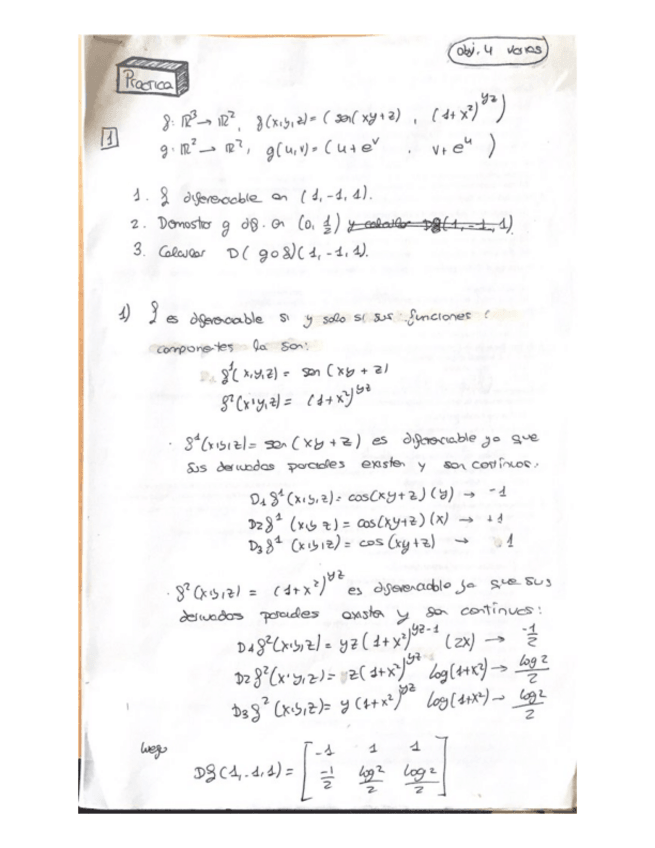 Obj. 4 varias
Practica
1
f: ℝ³ → ℝ², f(x,y,z) = ( sen(xy+z) , (1+x²)^yz )
g: ℝ² → ℝ², g(u,v) = ( u+e^v , v+e^u )
1. f diferenciable en (1,-1,1).
2. Demostrar g dif. en (0, 1/2) y calcular Dg(1,-1,1)
3. Calcular D(g∘f)(1,-1,1).
1) f es diferenciable si y solo si sus funciones
componentes la son:
f¹(x,y,z) = sen(xy+z)
f²(x,y,z) = (1+x²)^yz
· f¹(x,y,z) = sen(xy+z) es diferenciable ya que
sus derivadas parciales existen y son continuas:
D1f¹(x,y,z) = cos(xy+z)(y) → -1
D2f¹(x,y,z) = cos(xy+z)(x) → +1
D3f¹(x,y,z) = cos(xy+z) → 1
· f²(x,y,z) = (1+x²)^yz es diferenciable ya que sus
derivadas parciales existen y son continuas:
D1f²(x,y,z) = yz(1+x²)^yz-1 (2x) → -1/2
D2f²(x,y,z) = z(1+x²)^yz log(1+x²) → log2/2
D3f²(x,y,z) = y(1+x²)^yz log(1+x²) → log2/2
luego
Df(1,-1,1) = [ -1 1 1
-1/2 log2/2 log2/2 ]